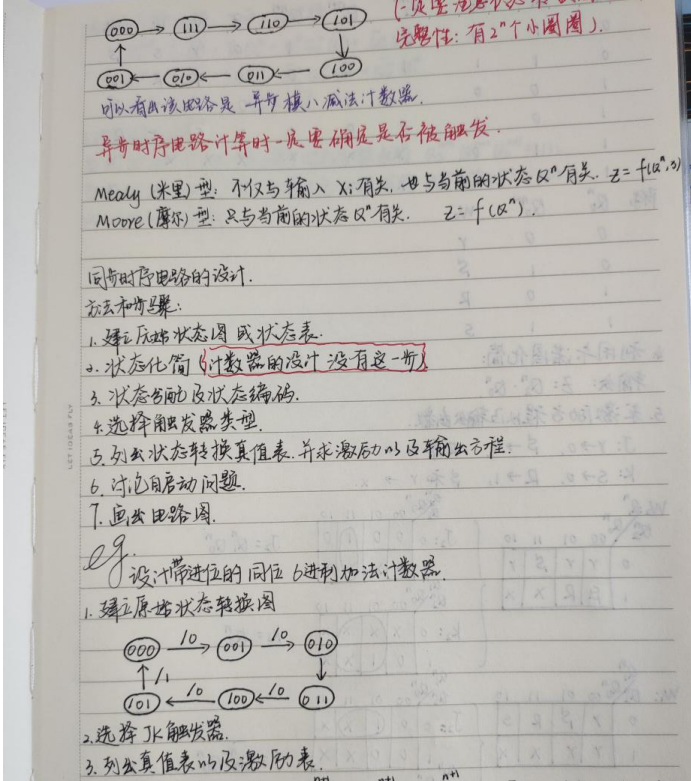 (一定要注意
完整性：有2ⁿ个小圈圈).
000 → 111 → 110 → 101
001 ← 010 ← 011 ← 100
可以看出该电路是 异步模八减法计数器.
异步时序电路计算时一定要确定是否被触发.
Mealy (米里) 型: 不仅与输入 Xi 有关. 也与当前的状态 Qⁿ 有关. Z = f(Qⁿ,
Moore (摩尔) 型: 只与当前的状态 Qⁿ 有关. Z = f(Qⁿ).
同步时序电路的设计.
方法和步骤:
1. 建立原始状态图 或状态表.
2. 状态化简 (计数器的设计 没有这一步)
3. 状态分配及状态编码.
4. 选择触发器类型.
5. 列出状态转换真值表. 并求激励以及输出方程.
6. 讨论自启动问题.
7. 画出电路图.
eg. 设计带进位的 同位 6进制加法计数器.
1. 建立原始状态转换图
000 /0→ 001 /0→ 010
/1
101 ←/0 100 ←/0 011
2. 选择 JK 触发器.
3. 列出真值表以及激励表.
n+1 n+1